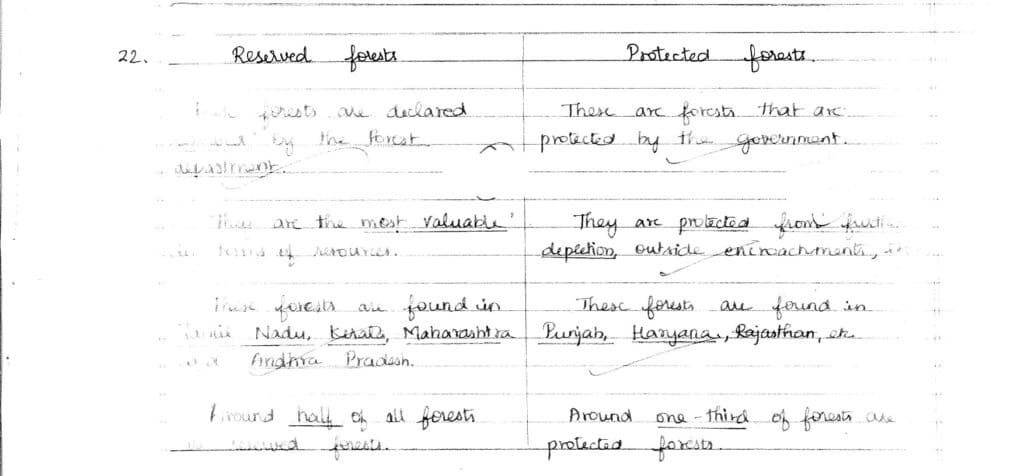 22. Reserved forests Protected forests.
forests are declared These are forests that are
by the forest protected by the government.
department.
These are the most valuable They are protected from
terms of resources. depletion, outside encroachments,
These forests are found in These forests are found in
Nadu, Kerala, Maharashtra Punjab, Haryana, Rajasthan, etc.
Andhra Pradesh.
Around half of all forests Around one-third of forests are
reserved forests. protected forests.